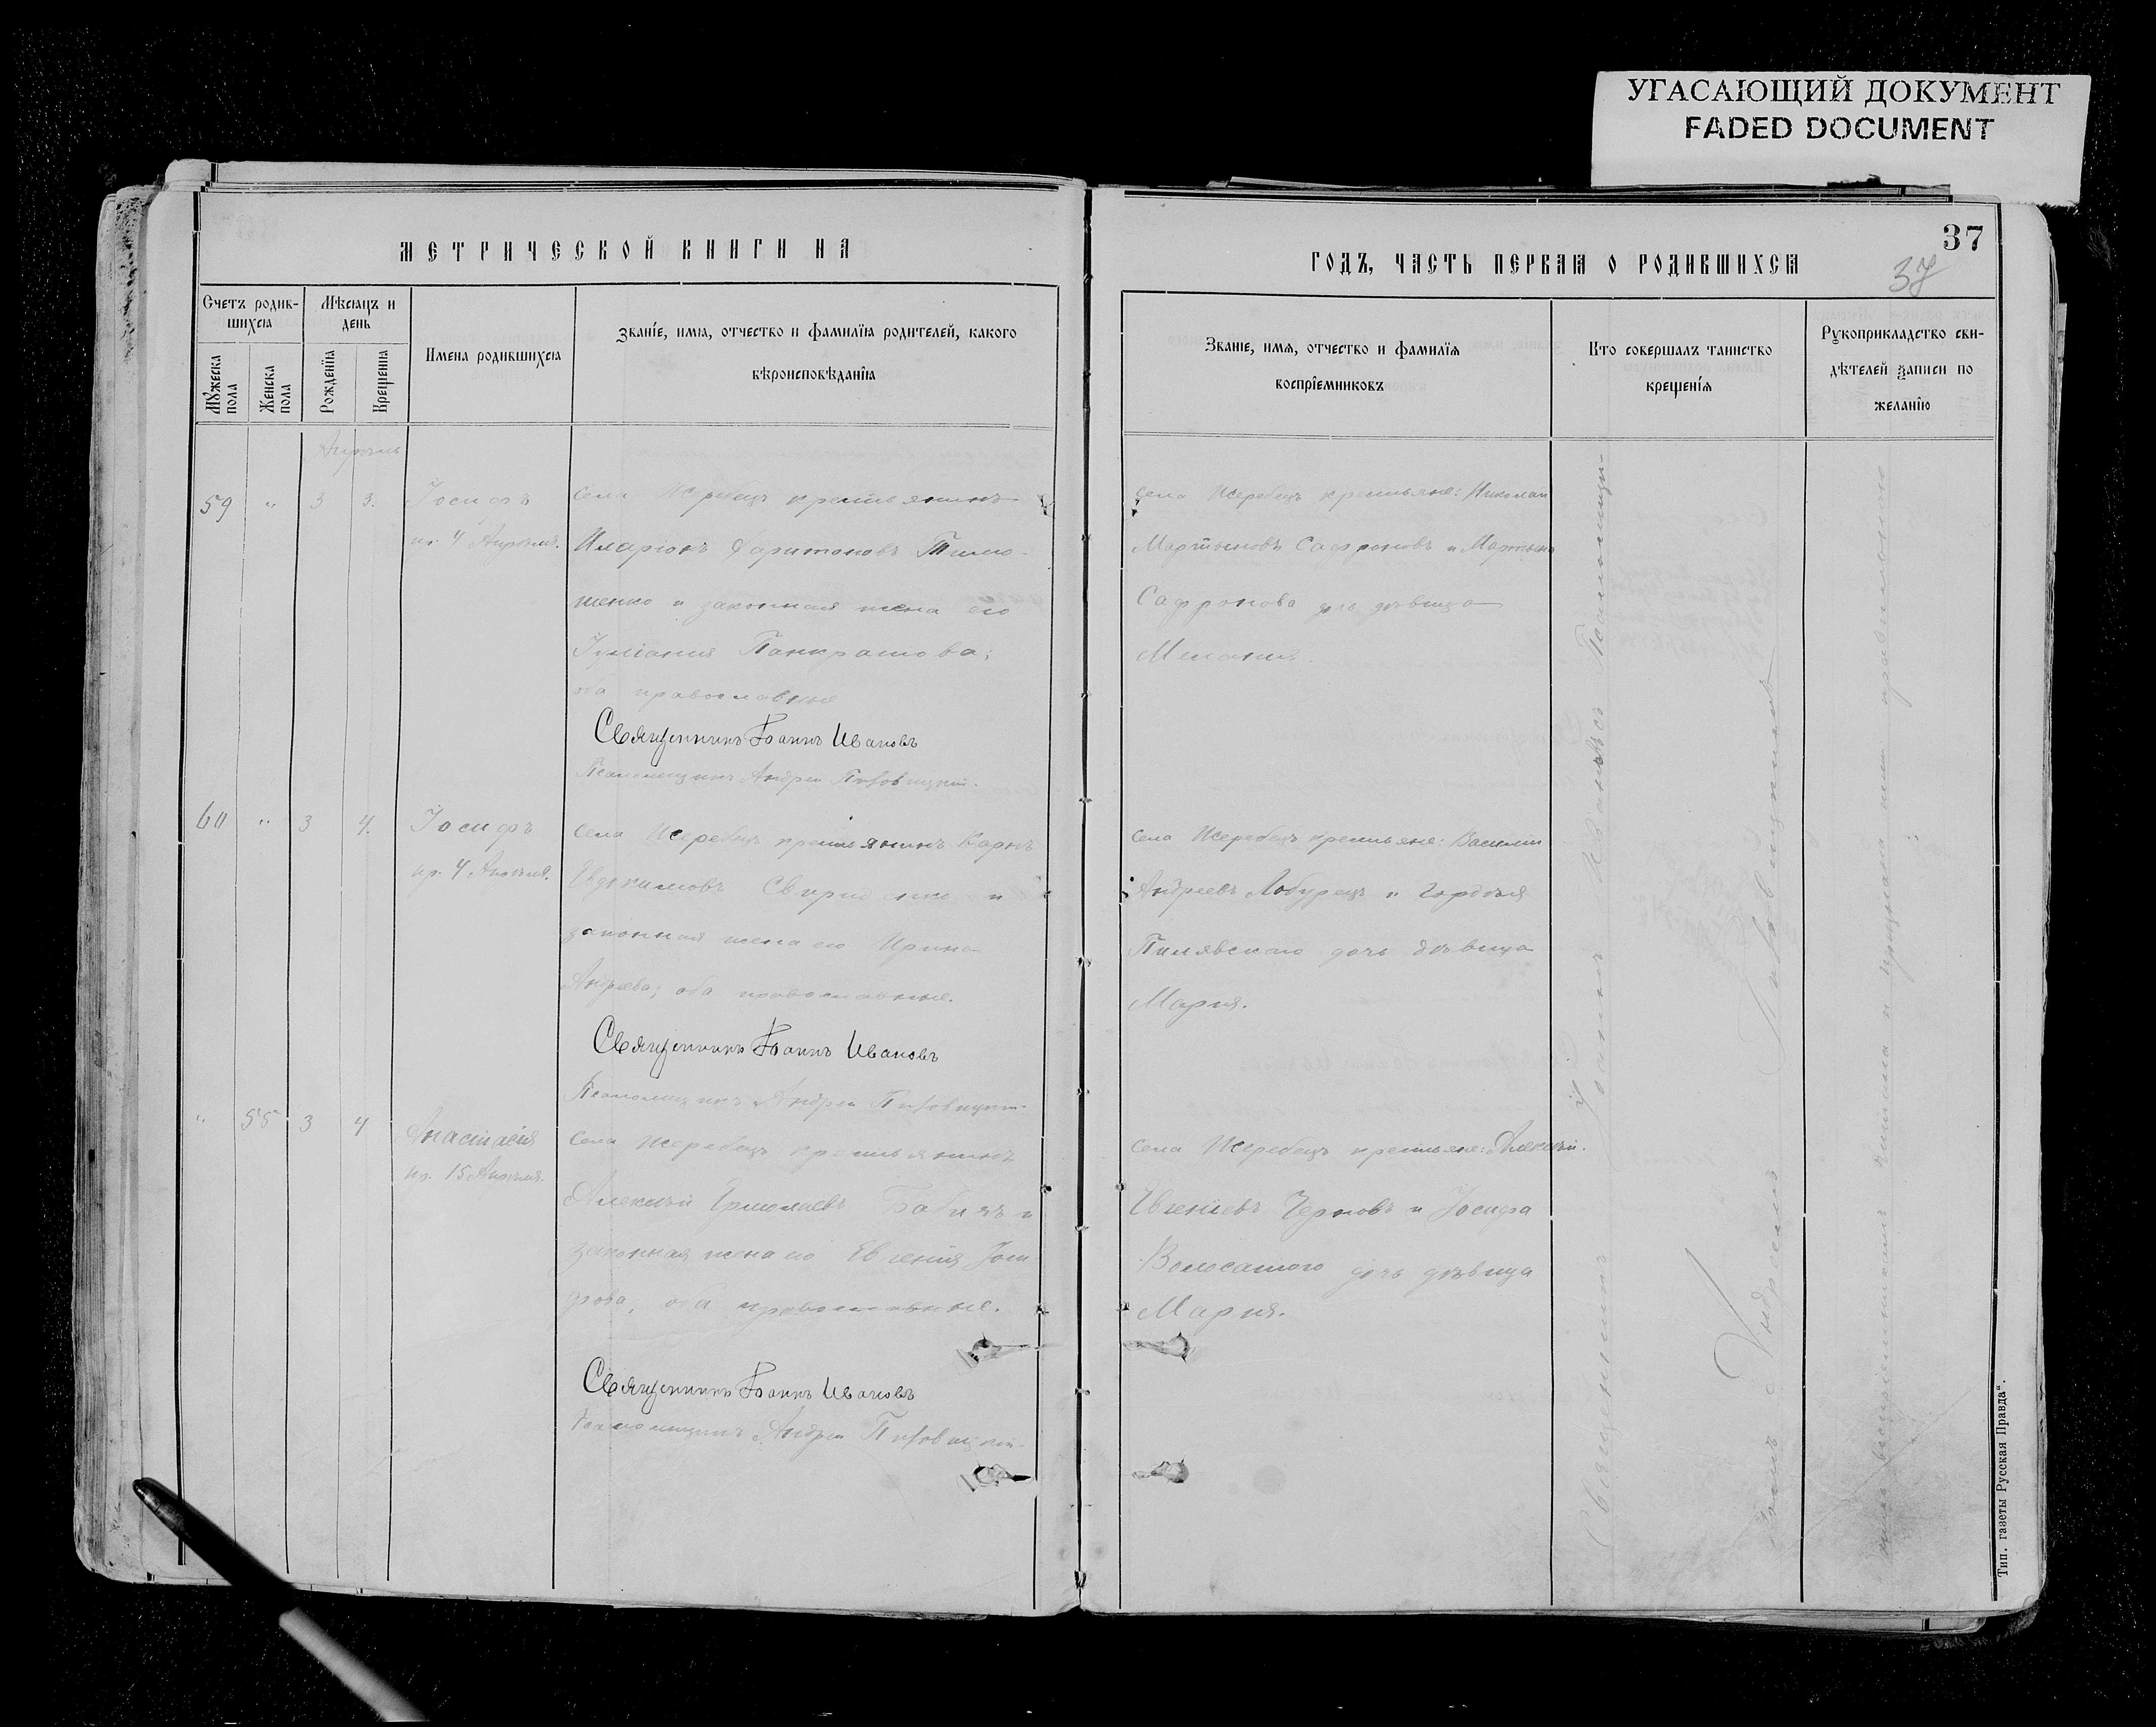 УГАСАЮЩИЙ ДОКУМЕНТ
FADED DOCUMENT
МЕТРИЧЕСКОЙ КНИГИ НА
Счетъ родив-
шихся
Мѣсяцъ и
день
Мужеска
пола
Женска
пола
Рожденїя
Крещенїя
Имена родившихся
Званїе, имя, отчество и фамилїя родителей, какого
вѣроисповѣданїя
Апрѣль
59 " 3 3. Іосифъ
пр. 4 Апрѣля.
села Жеребецъ крестьянинъ
Иларіонъ Харитоновъ Тимо-
шенко и законная жена его
Іуліанія Панкратова;
оба православные
Священникъ Іоаннъ Ивановъ
Псаломщикъ Андрей
60 " 3 4. Іосифъ
пр. 4 Апрѣля.
села Жеребецъ крестьянинъ Карпъ
Евдокимовъ и
законная жена его Ирина
Андреева; оба православные.
Священникъ Іоаннъ Ивановъ
Псаломщикъ Андрей
" 55 3 4 Анастасія
пр. 15 Апрѣля.
села Жеребецъ крестьянинъ
Алексѣй Ермолаевъ и
законная жена его Евгенія
оба православные.
Священникъ Іоаннъ Ивановъ
Псаломщикъ Андрей
37
37
ГОДЪ, ЧАСТЬ ПЕРВАЯ О РОДИВШИХСЯ
Званїе, имя, отчество и фамилїя
воспрїемниковъ
Кто совершалъ таинство
крещенїя
Рукоприкладство сви-
дѣтелей записи по
желанїю
села Жеребецъ крестьяне: Николай
Мартыновъ Сафроновъ и Мартына
Сафронова дочь дѣвица
Меланія.
села Жеребецъ крестьяне: Василій
Андреевъ Лобурецъ и Гордѣя
Пилявскаго дочь дѣвица
Марія.
села Жеребецъ крестьяне: Алексѣй
Евгеніевъ Черновъ и Іосифа
Волосатого дочь дѣвица
Марія.
Священникъ Іоаннъ Ивановъ съ Псаломщи-
комъ Андреемъ
Тип. газеты Русская Правда".